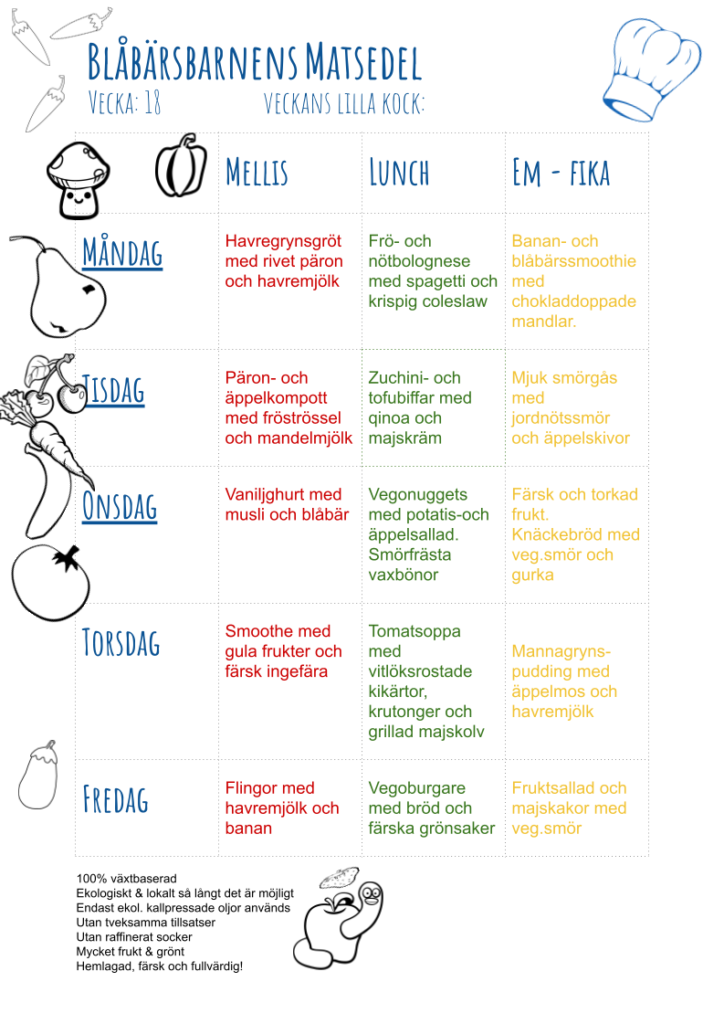 Blåbärsbarnens Matsedel
Vecka: 18 veckans lilla kock:
Mellis Lunch Em - fika
Måndag
Havregrynsgröt
med rivet päron
och havremjölk
Frö- och
nötbolognese
med spagetti och
krispig coleslaw
Banan- och
blåbärssmoothie
med
chokladdoppade
mandlar.
Tisdag
Päron- och
äppelkompott
med fröströssel
och mandelmjölk
Zuchini- och
tofubiffar med
qinoa och
majskräm
Mjuk smörgås
med
jordnötssmör
och äppelskivor
Onsdag
Vaniljghurt med
musli och blåbär
Vegonuggets
med potatis-och
äppelsallad.
Smörfrästa
vaxbönor
Färsk och torkad
frukt.
Knäckebröd med
veg.smör och
gurka
Torsdag
Smoothe med
gula frukter och
färsk ingefära
Tomatsoppa
med
vitlöksrostade
kikärtor,
krutonger och
grillad majskolv
Mannagryns-
pudding med
äppelmos och
havremjölk
Fredag
Flingor med
havremjölk och
banan
Vegoburgare
med bröd och
färska grönsaker
Fruktsallad och
majskakor med
veg.smör
100% växtbaserad
Ekologiskt & lokalt så långt det är möjligt
Endast ekol. kallpressade oljor används
Utan tveksamma tillsatser
Utan raffinerat socker
Mycket frukt & grönt
Hemlagad, färsk och fullvärdig!